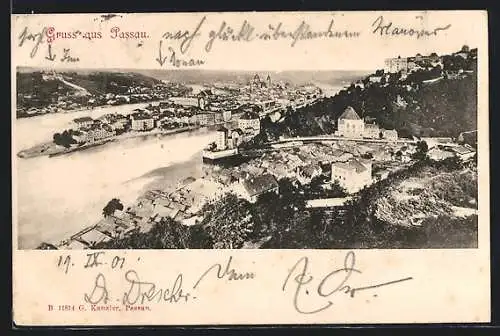 Gruss aus Passau.
nach glückl. überstandenem Manöver
↓ Inn
↓ Donau
19. IX 01
Dr. Drescher
B 11814 G. Kanzler, Passau.